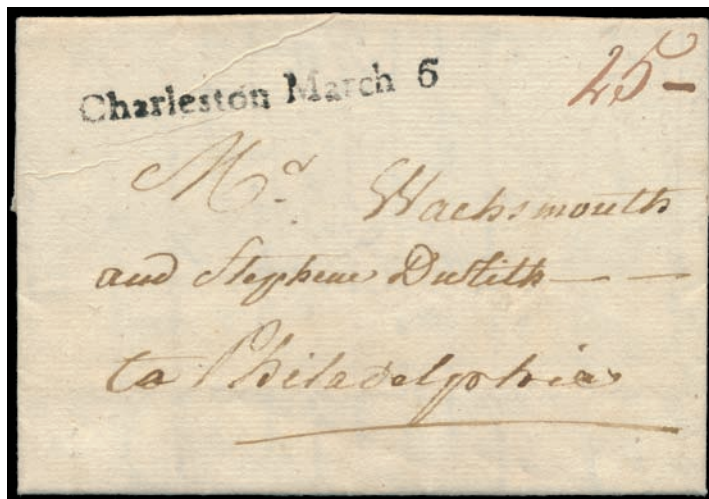 Charleston March 6
25-
Mr Wachsmouth
and Stephen Dutilh
to Philadelphia